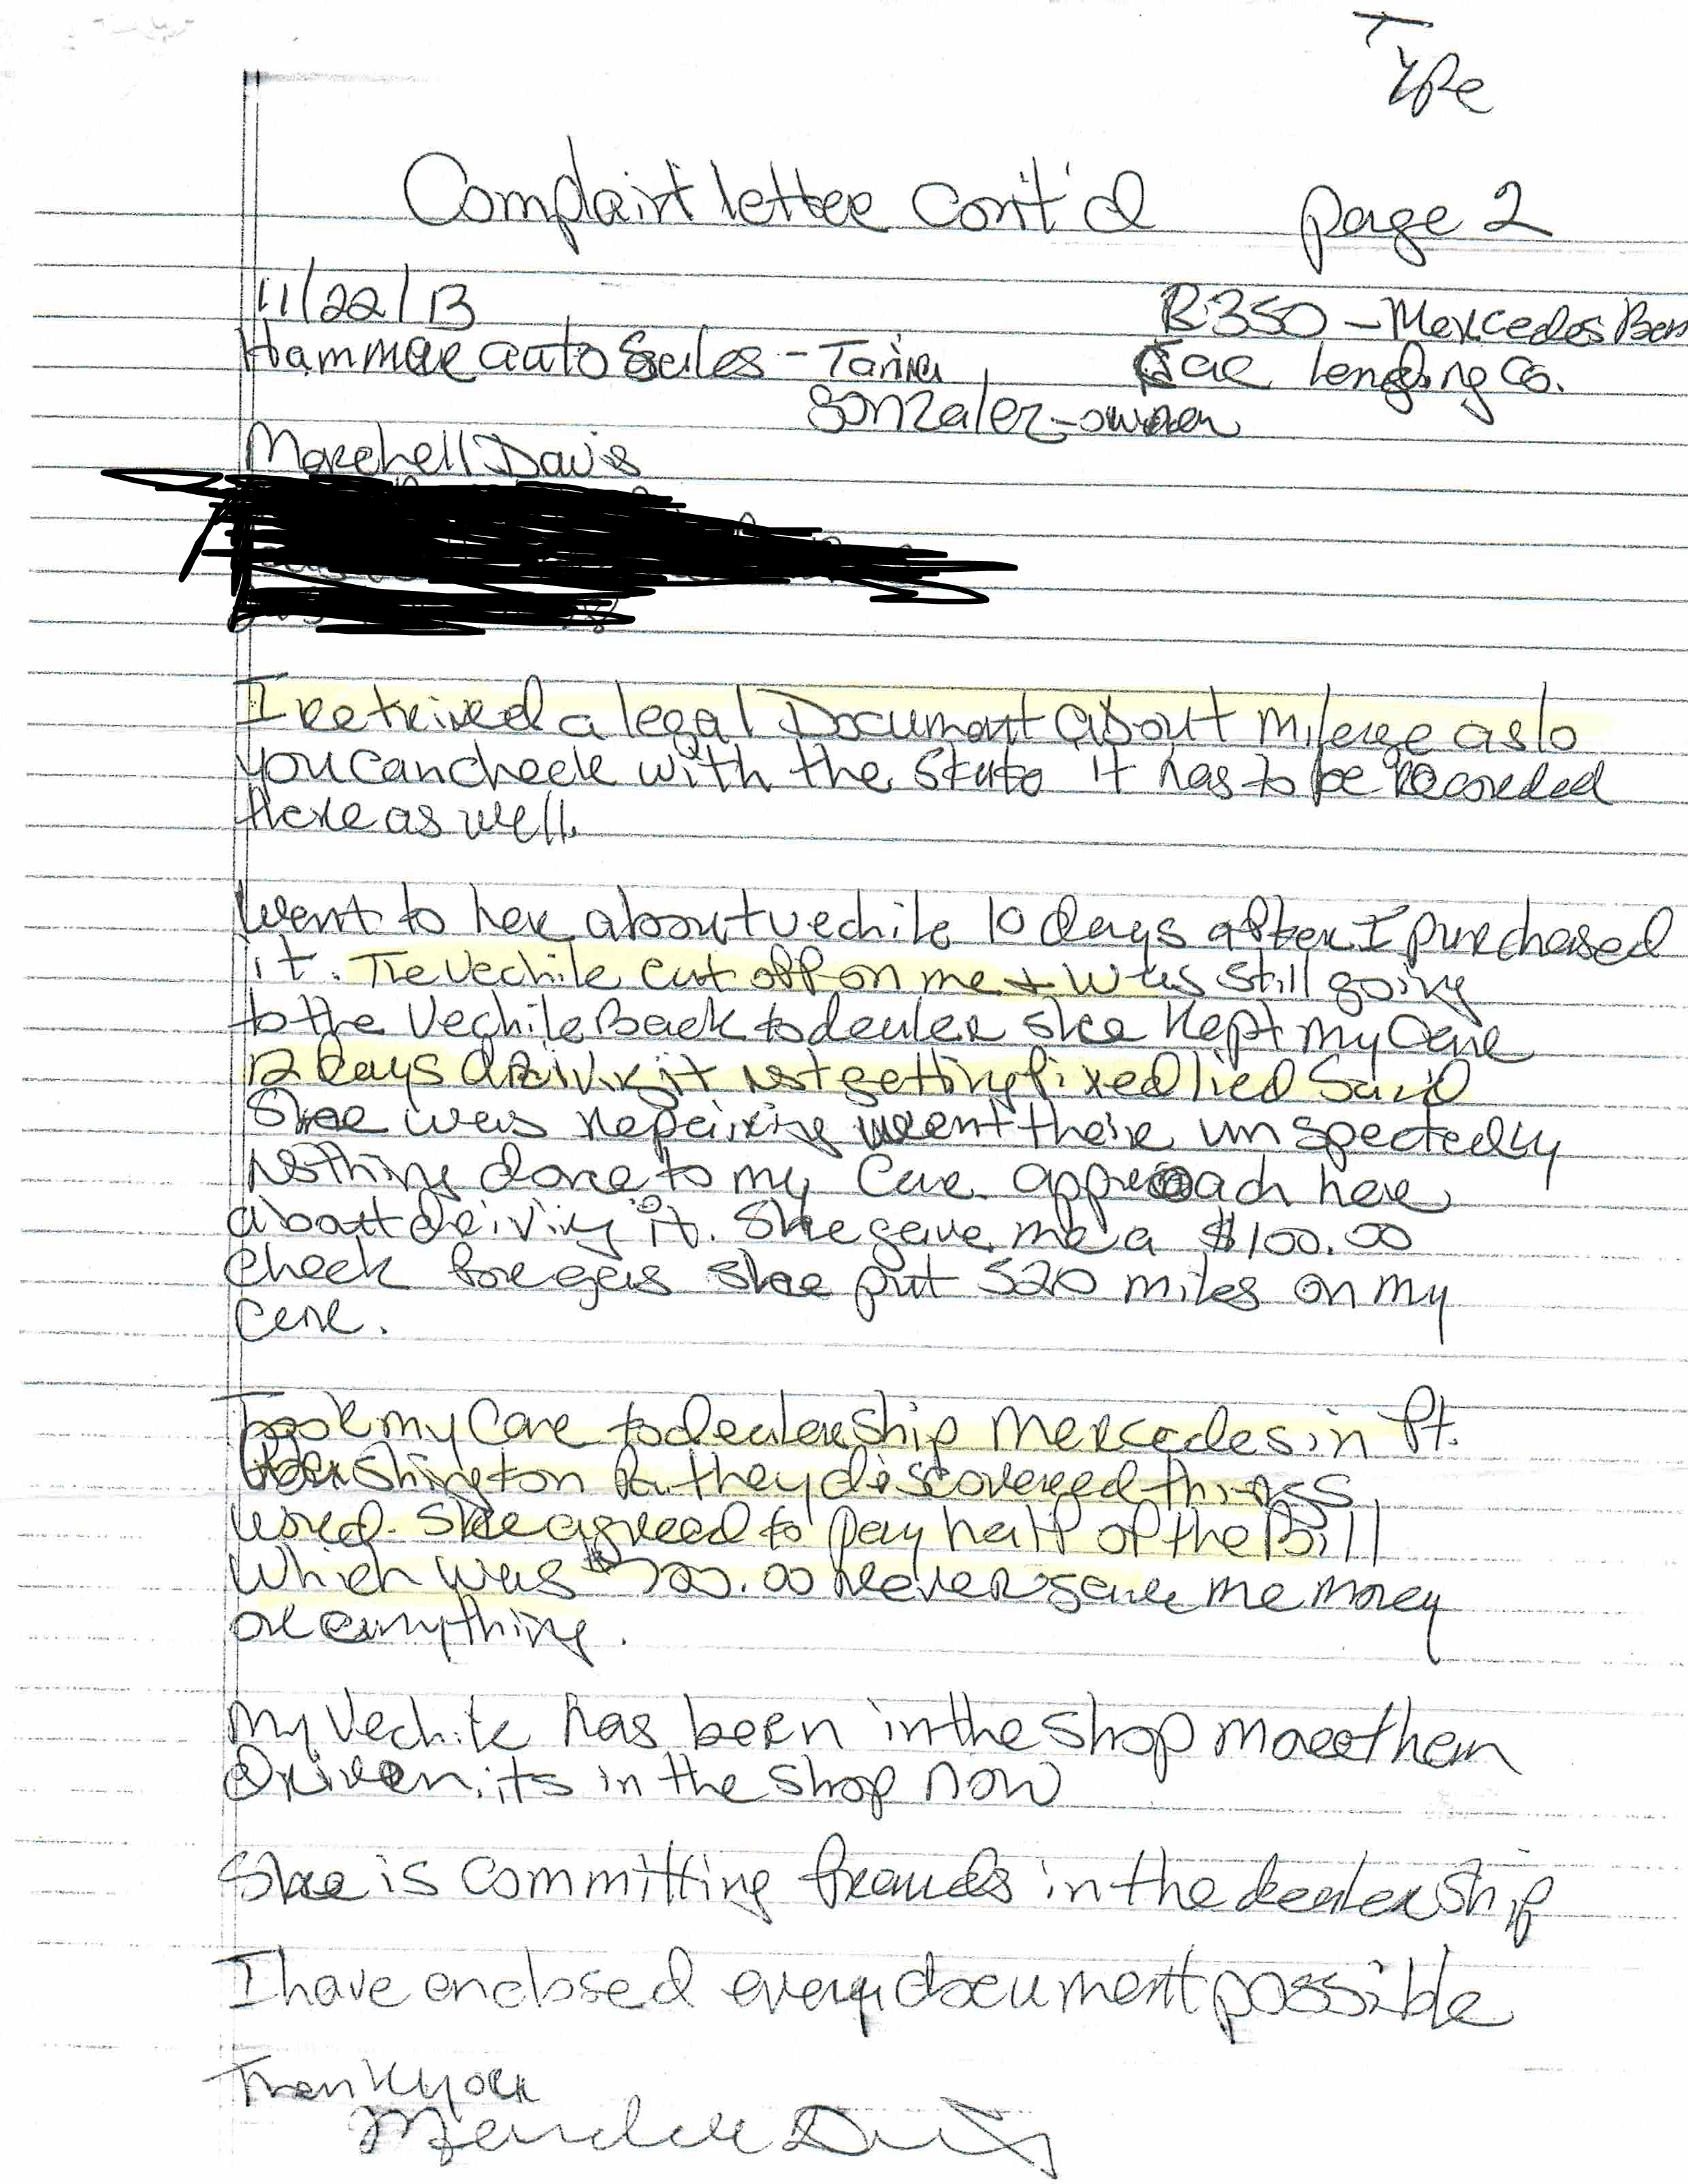 Type
Complaint letter Cont'd page 2
11/22/13 R350 - Mercedes Ben
Hammer auto Sales - Tania Car Lending Co.
Gonzalez - owner
Marchell Davis
I retrived a legal Document about milerge aslo
you can check with the State it has to be recorded
there as well.
Went to her about vechile 10 days after I purchased
it. The Vechile cut off on me & was still going
to the Vechile Back to dealer she kept my Care
12 Days driving it not getting fixed lied Said
She was repairing went their unspectedly
Nothing done to my Care. approach here
about driving it. She gave me a $100.00
Check for gas she put 520 miles on my
Care.
Took my Care to dealership Mercedes in Ft.
Washington Pa they discovered things
She agreed to pay half of the Bill
Which was $700.00 Never gave me money
or anything.
My Vechile has been in the shop more them
Driven. its in the shop now
She is committing frauds in the dealership
I have enclosed every document possible
Thank you
Marchell Davis